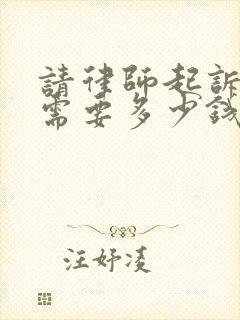 請律師起訴
需要多少錢
汪妤凌